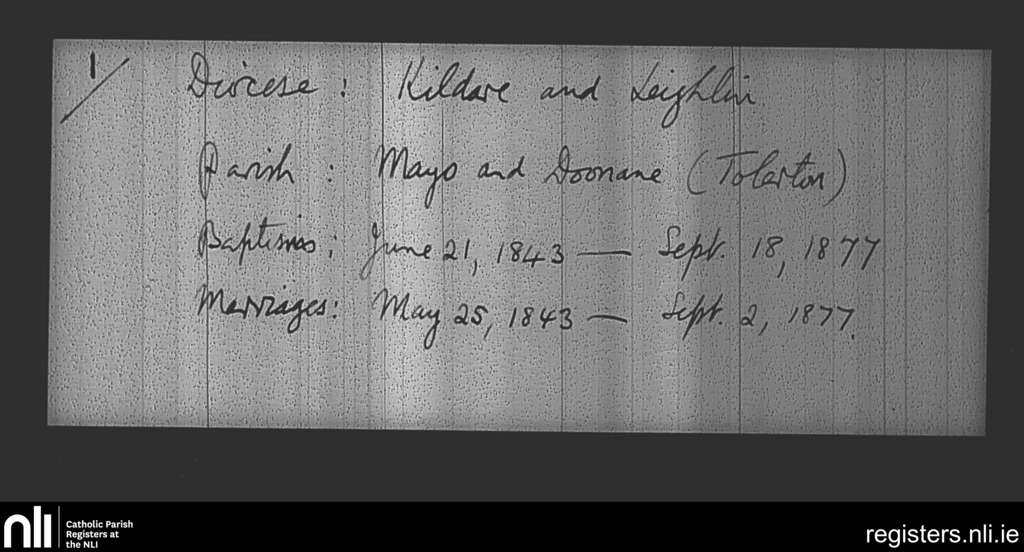 1/
Diocese : Kildare and Leighlin
Parish : Mayo and Doonane (Tolerton)
Baptisms : June 21, 1843 — Sept. 18, 1877
Marriages : May 25, 1843 — Sept. 2, 1877.
nli
Catholic Parish
Registers at
the NLI
registers.nli.ie